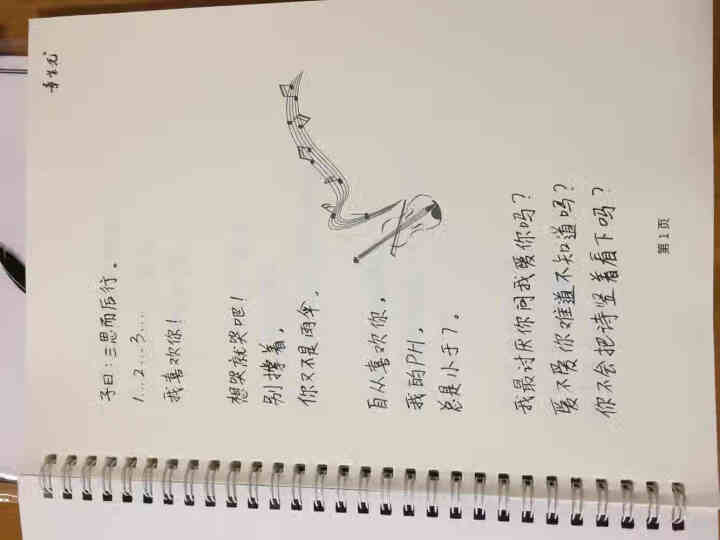 子曰：三思而后行。
1...2...3....
我喜欢你！
想哭就哭吧！
别撑着，
你又不是雨伞。
自从喜欢你，
我的PH，
总是小于7。
我最讨厌你问我爱你吗？
爱不爱你难道不知道吗？
你不会把诗竖着看下吗？
第1页